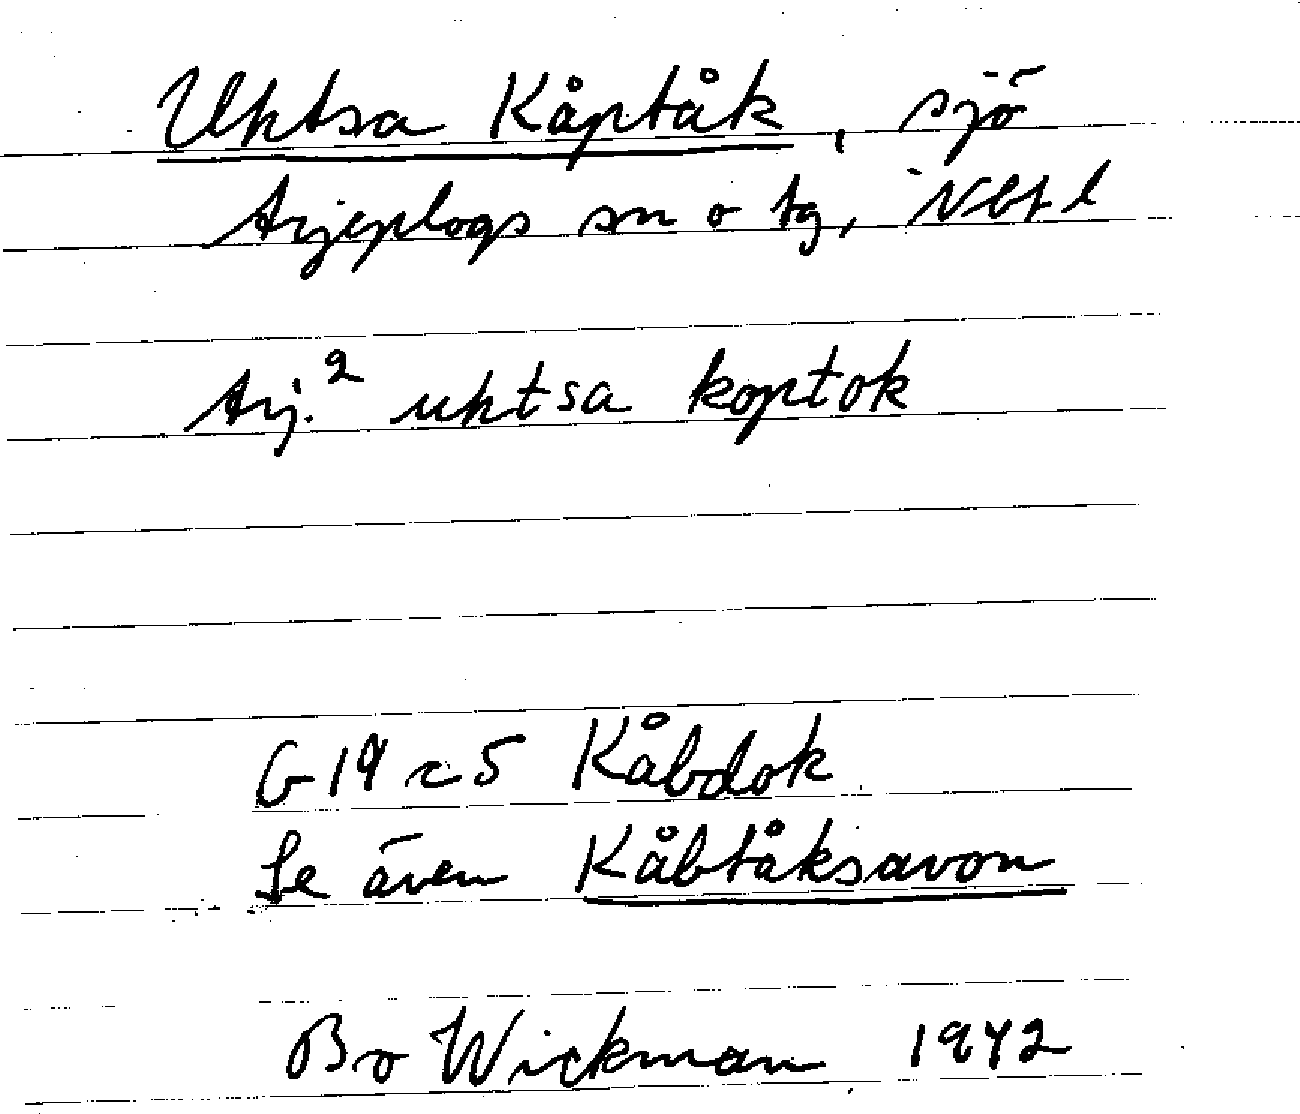 Uhtsa Kåptåk, sjö
Arjeplogs sn o tg, Nbt l
Arj.² uhtsa koptok
G 19 c 5 Kåbdok
Se även Kåbtåksavon
Bo Wickman 1942